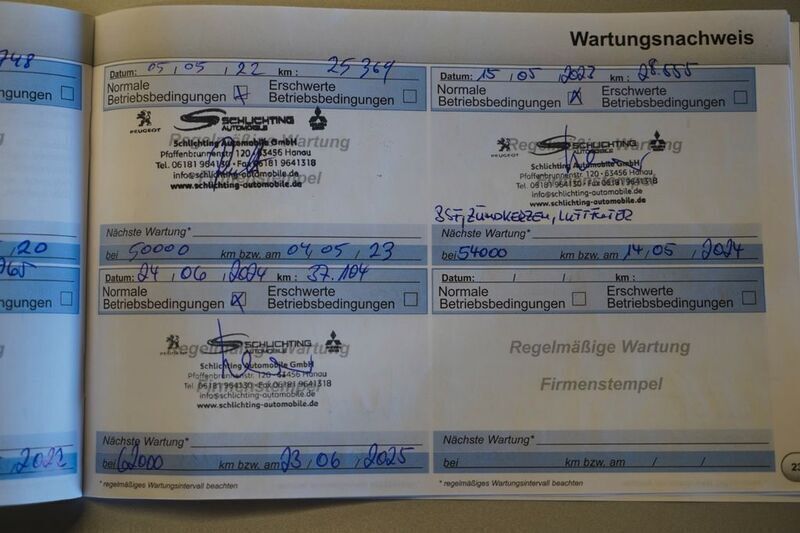 Wartungsnachweis
748
ngungen
Datum: 05, 05, 22 km: 25 369
Normale Betriebsbedingungen
Erschwerte Betriebsbedingungen
PEUGEOT
SCHLICHTING
AUTOMOBILE
Regelmäßige Wartung
Schlichting Automobile GmbH
Pfaffenbrunnenstr 120 · 63456 Hanau
Tel. 06181 964130 · Fax 06181 9641318
info@schlichting-automobile.de
www.schlichting-automobile.de
Firmenstempel
Nächste Wartung*
bei 50000 km bzw. am 04, 05, 23
Datum: 15, 05, 2023 km: 28.555
Normale Betriebsbedingungen
Erschwerte Betriebsbedingungen
PEUGEOT
SCHLICHTING
AUTOMOBILE
Regelmäßige Wartung
Schlichting Automobile GmbH
Pfaffenbrunnenstr 120 · 63456 Hanau
Tel. 06181 964130 · Fax 06181 9641318
info@schlichting-automobile.de
www.schlichting-automobile.de
Firmenstempel
ZÜNDKERZEN, LUFTFILTER
Nächste Wartung*
bei 54000 km bzw. am 14, 05, 2024
20
765
ngungen
Datum: 24, 06, 2024 km: 37.104
Normale Betriebsbedingungen
Erschwerte Betriebsbedingungen
PEUGEOT
SCHLICHTING
AUTOMOBILE
Regelmäßige Wartung
Schlichting Automobile GmbH
Pfaffenbrunnenstr 120 · 63456 Hanau
Tel. 06181 964130 · Fax 06181 9641318
info@schlichting-automobile.de
www.schlichting-automobile.de
Firmenstempel
Nächste Wartung*
bei 62000 km bzw. am 23, 06, 2025
* regelmäßiges Wartungsintervall beachten
Datum: / / km:
Normale Betriebsbedingungen
Erschwerte Betriebsbedingungen
Regelmäßige Wartung
Firmenstempel
Nächste Wartung*
bei km bzw. am / /
* regelmäßiges Wartungsintervall beachten
2022
23